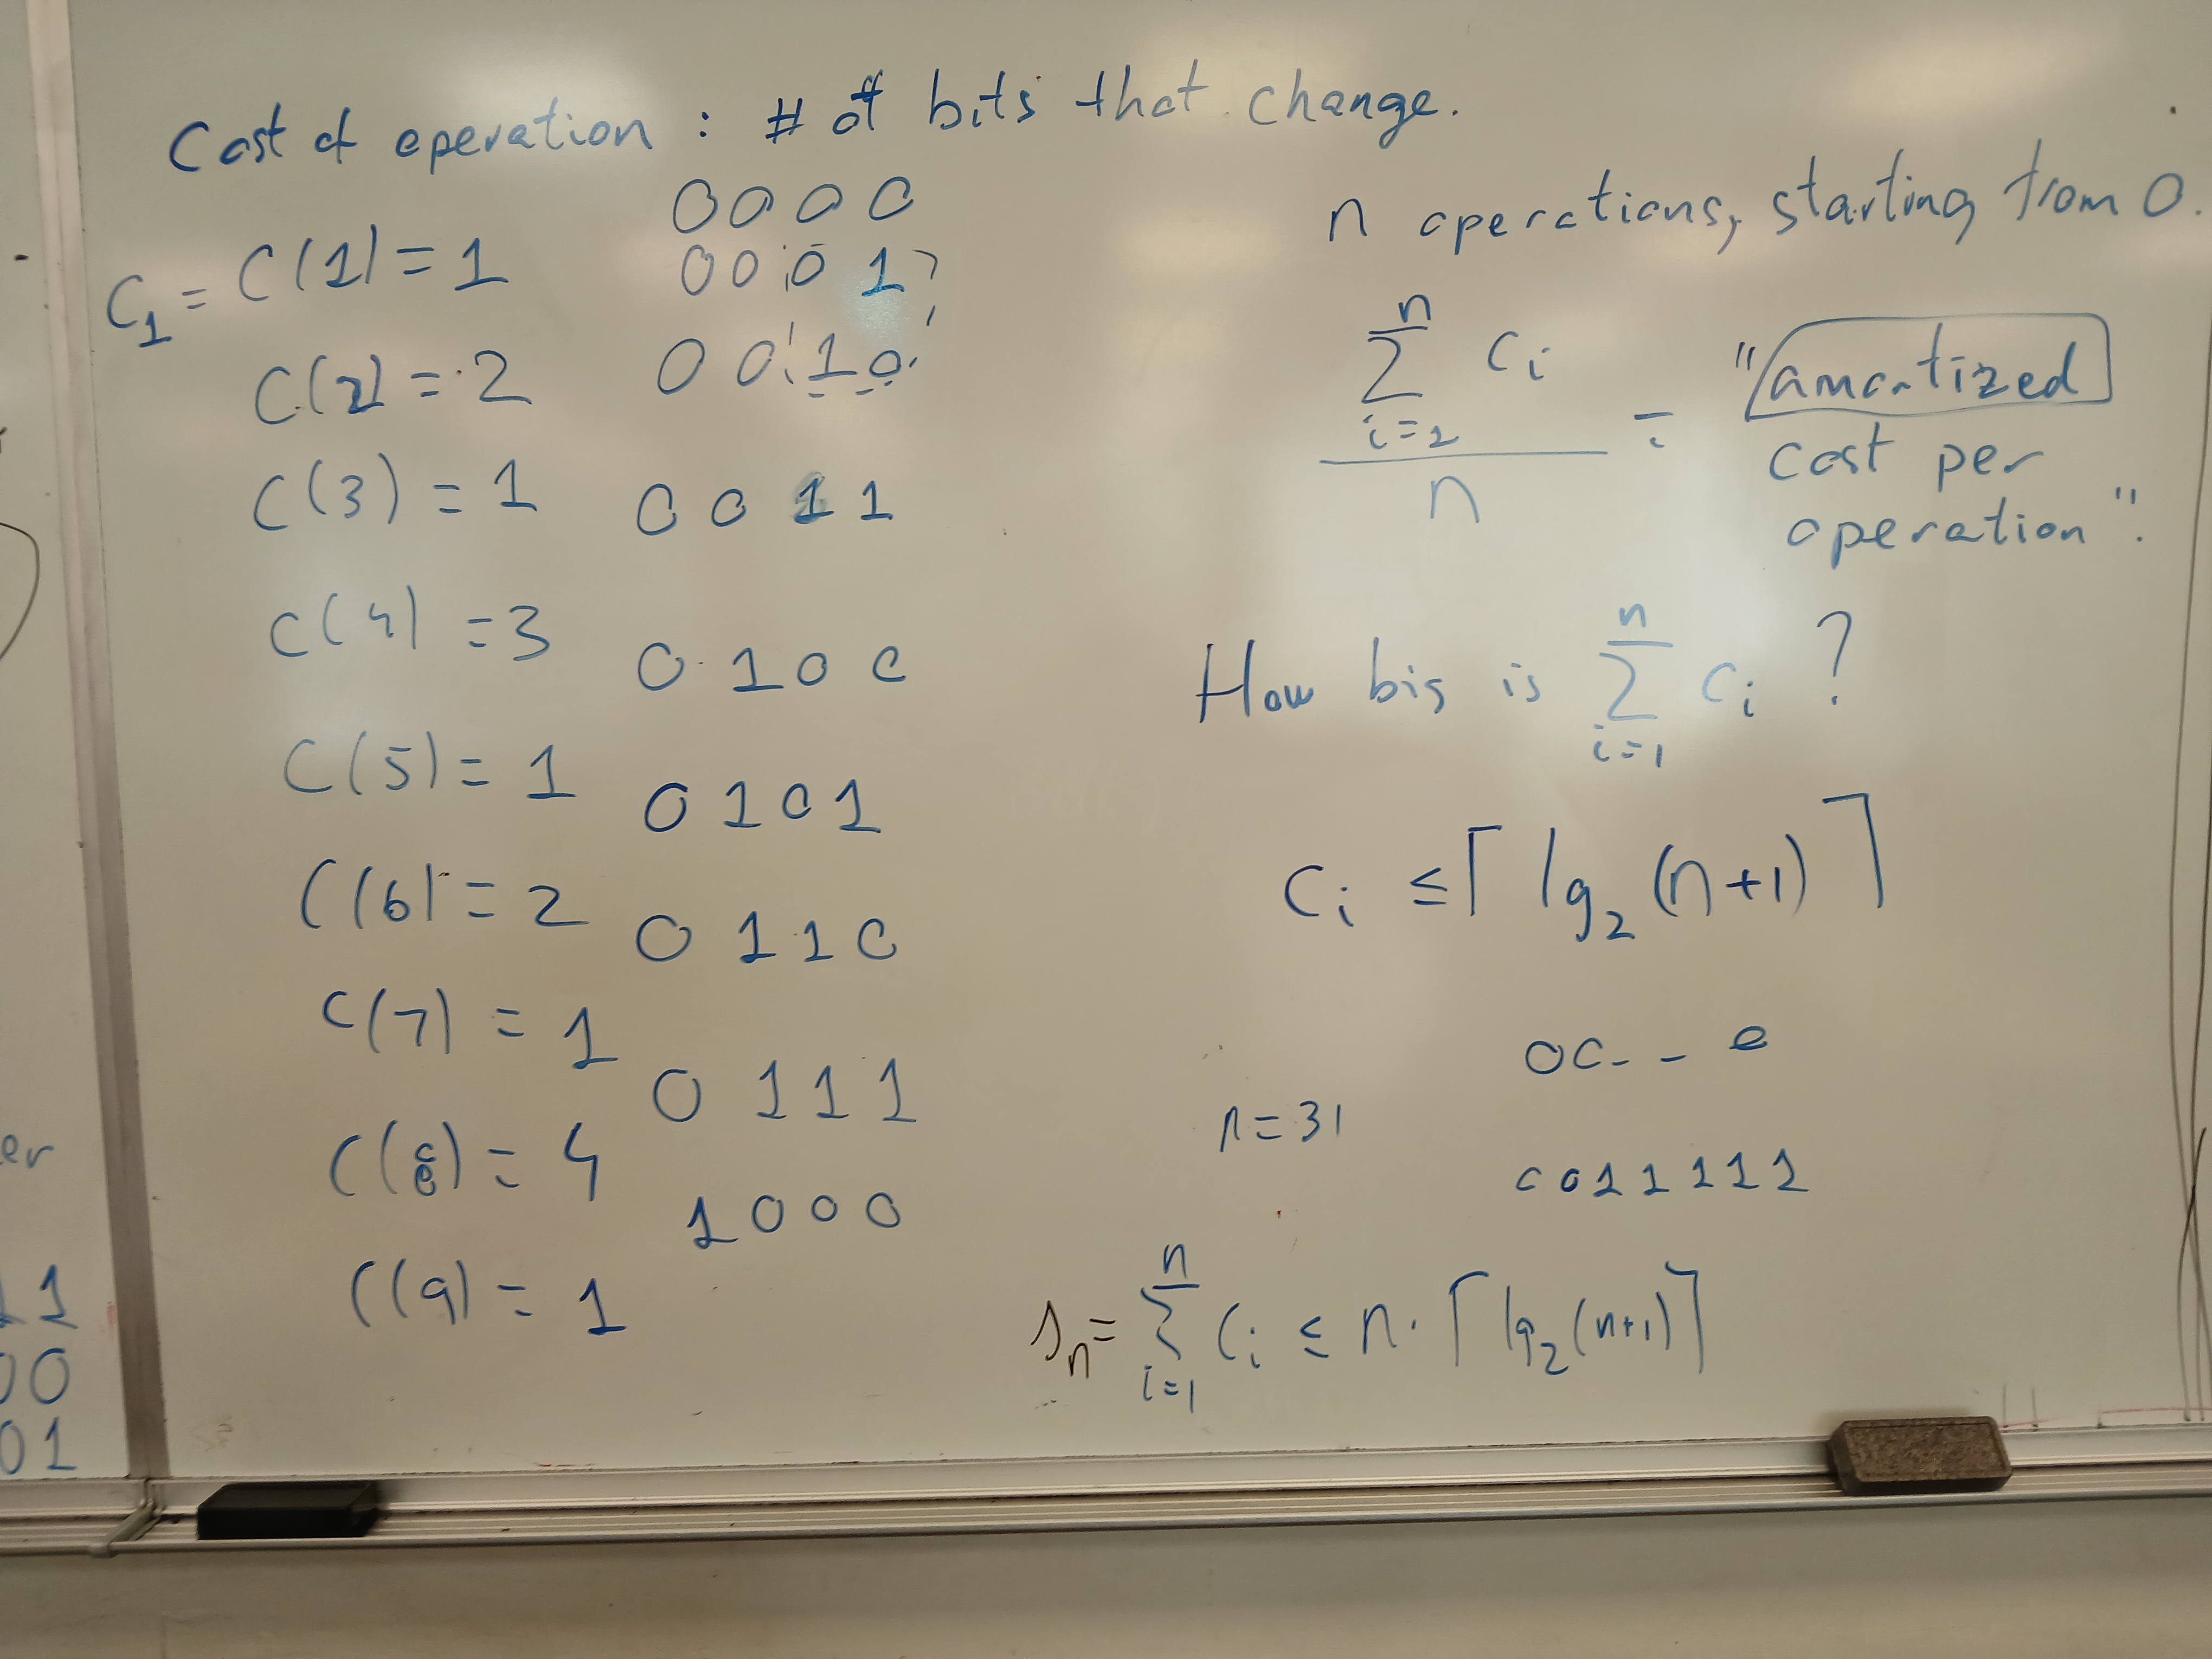 Cost of operation : # of bits that change.
0000
C₁ = C(1) = 1 0001
C(2) = 2 0010
C(3) = 1 0011
C(4) = 3 0100
C(5) = 1 0101
C(6) = 2 0110
C(7) = 1 0111
C(8) = 4 1000
C(9) = 1
n operations, starting from 0.
n
∑ Ci
i=1
n
= "amortized
cost per
operation".
n
How big is ∑ Ci ?
i=1
Ci ≤ ⌈lg₂(n+1)⌉
00 - - 0
n = 31
0011111
n
sn = ∑ Ci ≤ n · ⌈lg₂(n+1)⌉
i=1
er
11
00
01